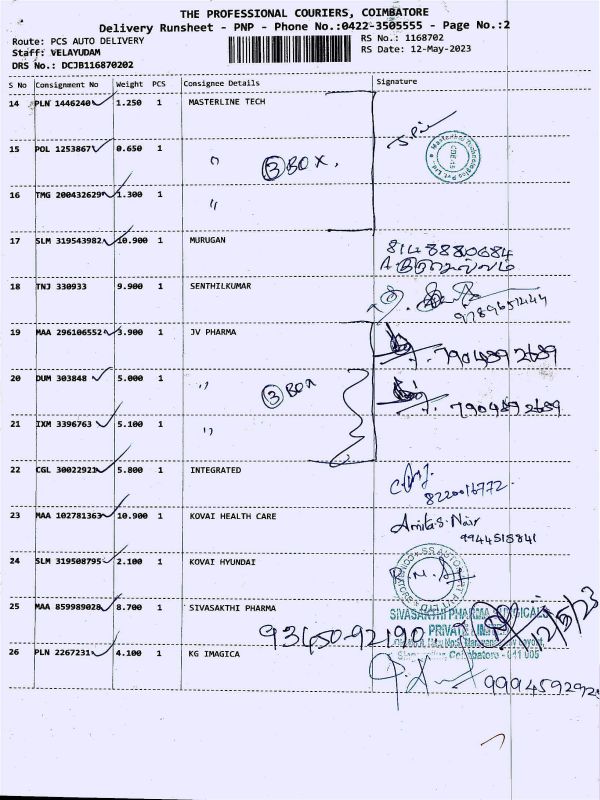 THE PROFESSIONAL COURIERS, COIMBATORE
Delivery Runsheet - PNP - Phone No.:0422-3505555 - Page No.:2
Route: PCS AUTO DELIVERY
RS No.: 1168702
Staff: VELAYUDAM
RS Date: 12-May-2023
DRS No.: DCJB116870202
S No Consignment No Weight PCS Consignee Details Signature
14 PLN 1446240 1.250 1 MASTERLINE TECH
15 POL 1253867 0.650 1 〃 3 BOX.
16 TMG 200432629 1.300 1 〃
17 SLM 319543982 10.900 1 MURUGAN 8148880684
18 TNJ 330933 9.900 1 SENTHILKUMAR 9789651444
19 MAA 296106552 3.900 1 JV PHARMA 7904892689
20 DUM 303848 5.000 1 〃 3 Box 7904892689
21 IXM 3396763 5.100 1 〃
22 CGL 30022921 5.800 1 INTEGRATED 8220016772.
23 MAA 102781363 10.900 1 KOVAI HEALTH CARE Amita.S.Nair
9944518841
24 SLM 319508795 2.100 1 KOVAI HYUNDAI
25 MAA 859989028 8.700 1 SIVASAKTHI PHARMA
SIVASAKTHI PHARMA SURGICALS
PRIVATE LIMITED
Coimbatore - 641 005
93450-92190
12/5/23
26 PLN 2267231 4.100 1 KG IMAGICA